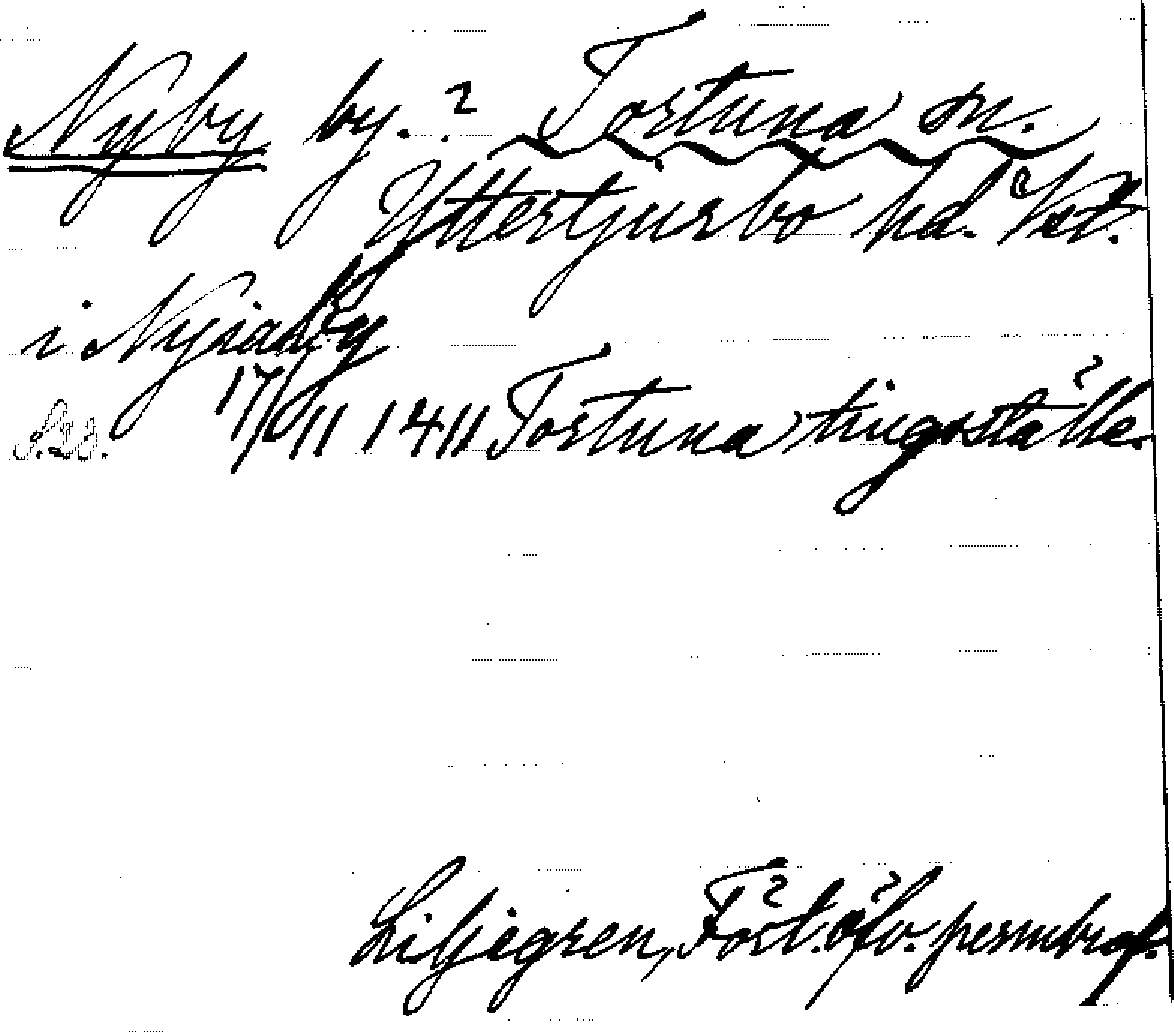 Nyby by. ? Tortuna sn.
Yttertjurbo hd. Vstl.
i Nysiaby
17/11 1411 Tortuna tingställe.
Liljegren, Fört. öfv. permbref.